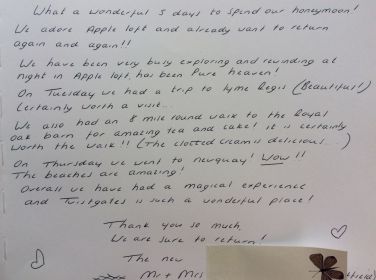 What a wonderful 5 days to spend our honeymoon!
We adore Apple loft and already want to return
again and again!!
We have been very busy exploring and rewinding at
night in Apple loft, has been Pure heaven!
On Tuesday we had a trip to Lyme Regis (Beautiful!)
Certainly worth a visit...
We also had an 8 mile round walk to the Royal
oak barn for amazing tea and cake! it is certainly
worth the walk!! (The clotted cream is delicious...)
On Thursday we went to newquay! Wow!!
The beaches are amazing!
Overall we have had a magical experience
and Twistgates is such a wonderful place!
Thank you so much,
We are sure to return!
The new
Mr + Mrs